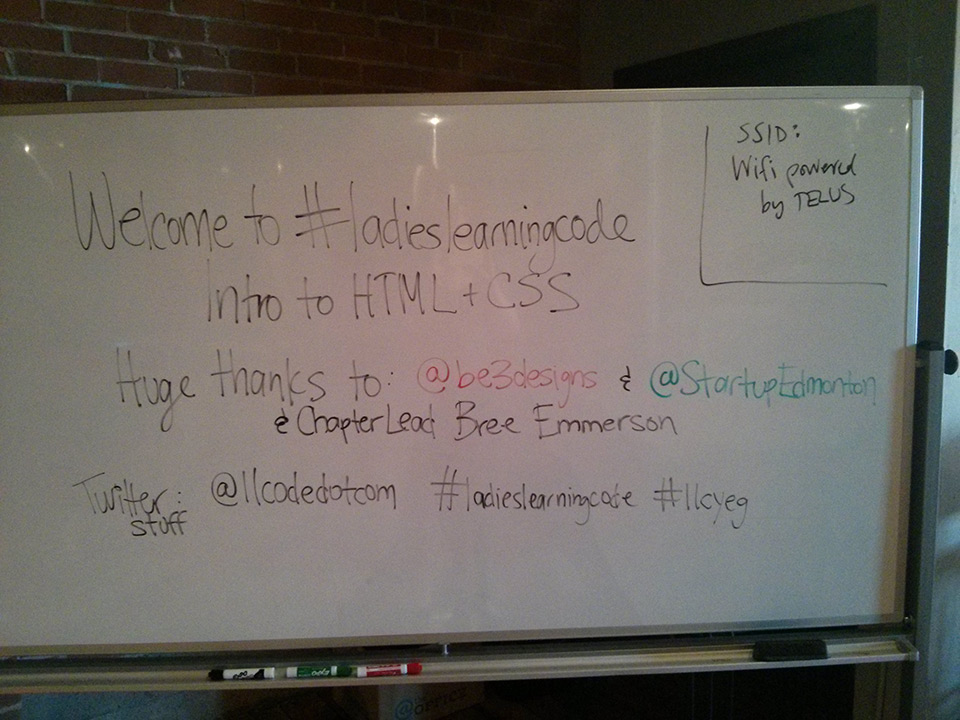 SSID:
Wifi powered
by TELUS
Welcome to #ladieslearningcode
Intro to HTML + CSS
Huge thanks to: @be3designs & @StartupEdmonton
& Chapter Lead Bree Emmerson
Twitter: @llcodedotcom #ladieslearningcode #llcyeg
stuff
@OFFICE